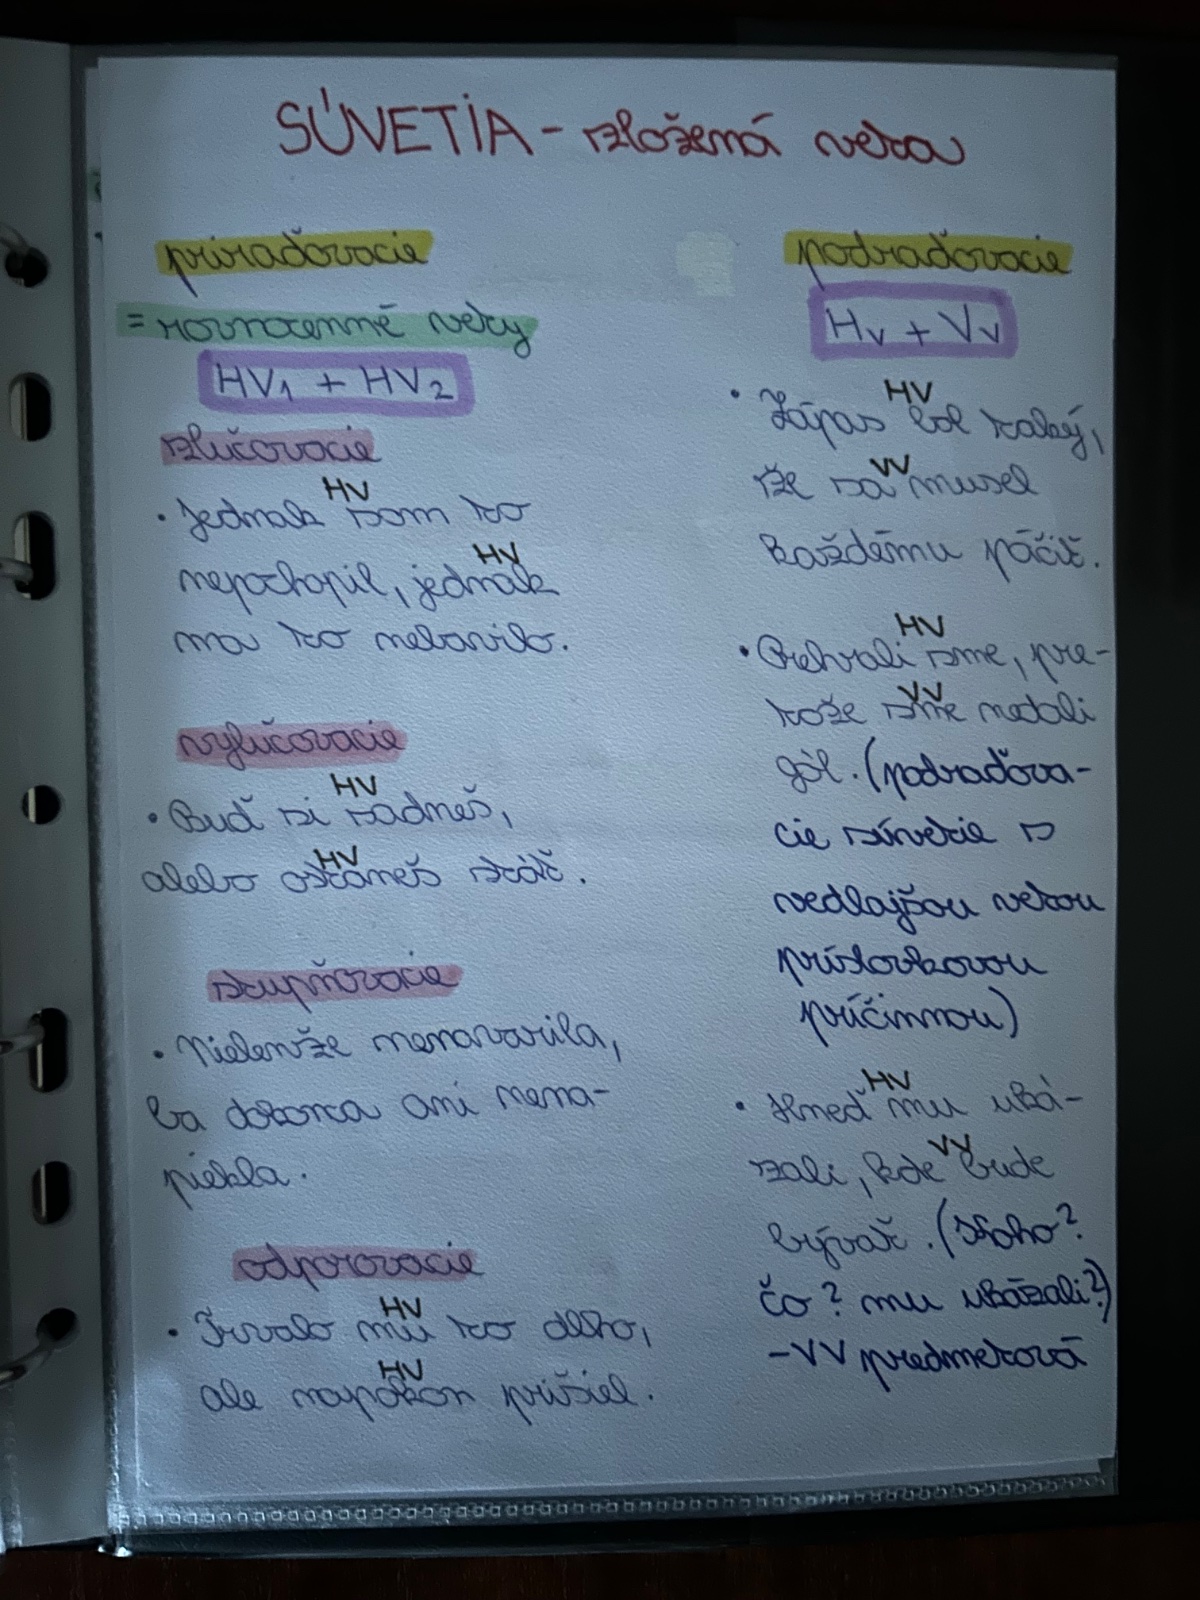 SÚVETIA - zložená veta
priraďovacie
= rovnocenné vety
HV1 + HV2
zlučovacie
HV
• Jednak som to
HV
nepochopil, jednak
ma to nebavilo.
vylučovacie
HV
• Buď si sadneš,
HV
alebo ostaneš stáť.
stupňovacie
• Nielenže nenavarila,
ba dokonca ani nena-
piekla.
odporovacie
HV
• Trvalo mu to dlho,
HV
ale napokon prišiel.
podraďovacie
Hv + Vv
HV
• Zápas bol taký,
VV
že sa musel
každému páčiť.
HV
• Prehrali sme, pre-
VV
tože sme nedali
gól. (podraďova-
cie súvetie s
vedlajšou vetou
príslovkovou
príčinnou)
HV
• Hneď mu uká-
VV
zali, kde bude
bývať. (Koho?
čo? mu ukázali?)
- VV predmetová